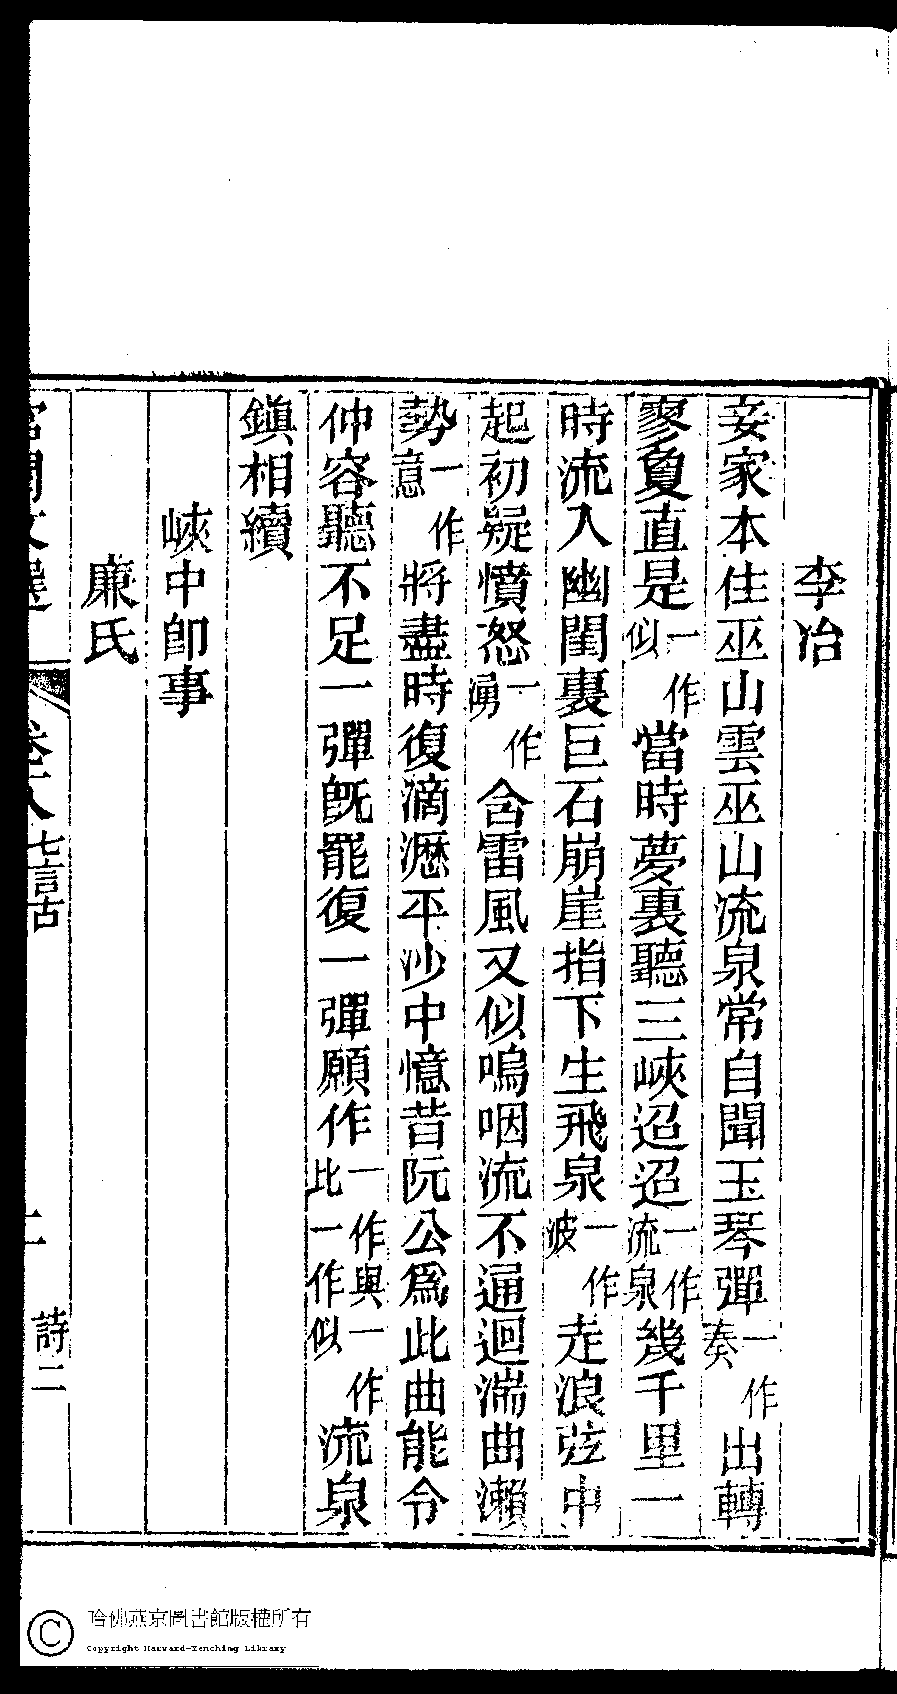 李冶
妾家本住巫山雲巫山流泉常自聞玉琴彈一作奏出轉
寥夐直是一作似當時夢裏聽三峽迢迢一作流泉幾千里一
時流入幽閨裏巨石崩崖指下生飛泉一作波走浪弦中
起初疑憤怒一作湧含雷風又似嗚咽流不通迴湍曲瀨
勢一作意將盡時復滴瀝平沙中憶昔阮公爲此曲能令
仲容聽不足一彈旣罷復一彈願作一作與一作比一作似流泉
鎭相續
峽中卽事
廉氏
宮閨文選
卷六
七言古
二
詩二
哈佛燕京圖書館版權所有
Copyright Harvard-Yenching Library